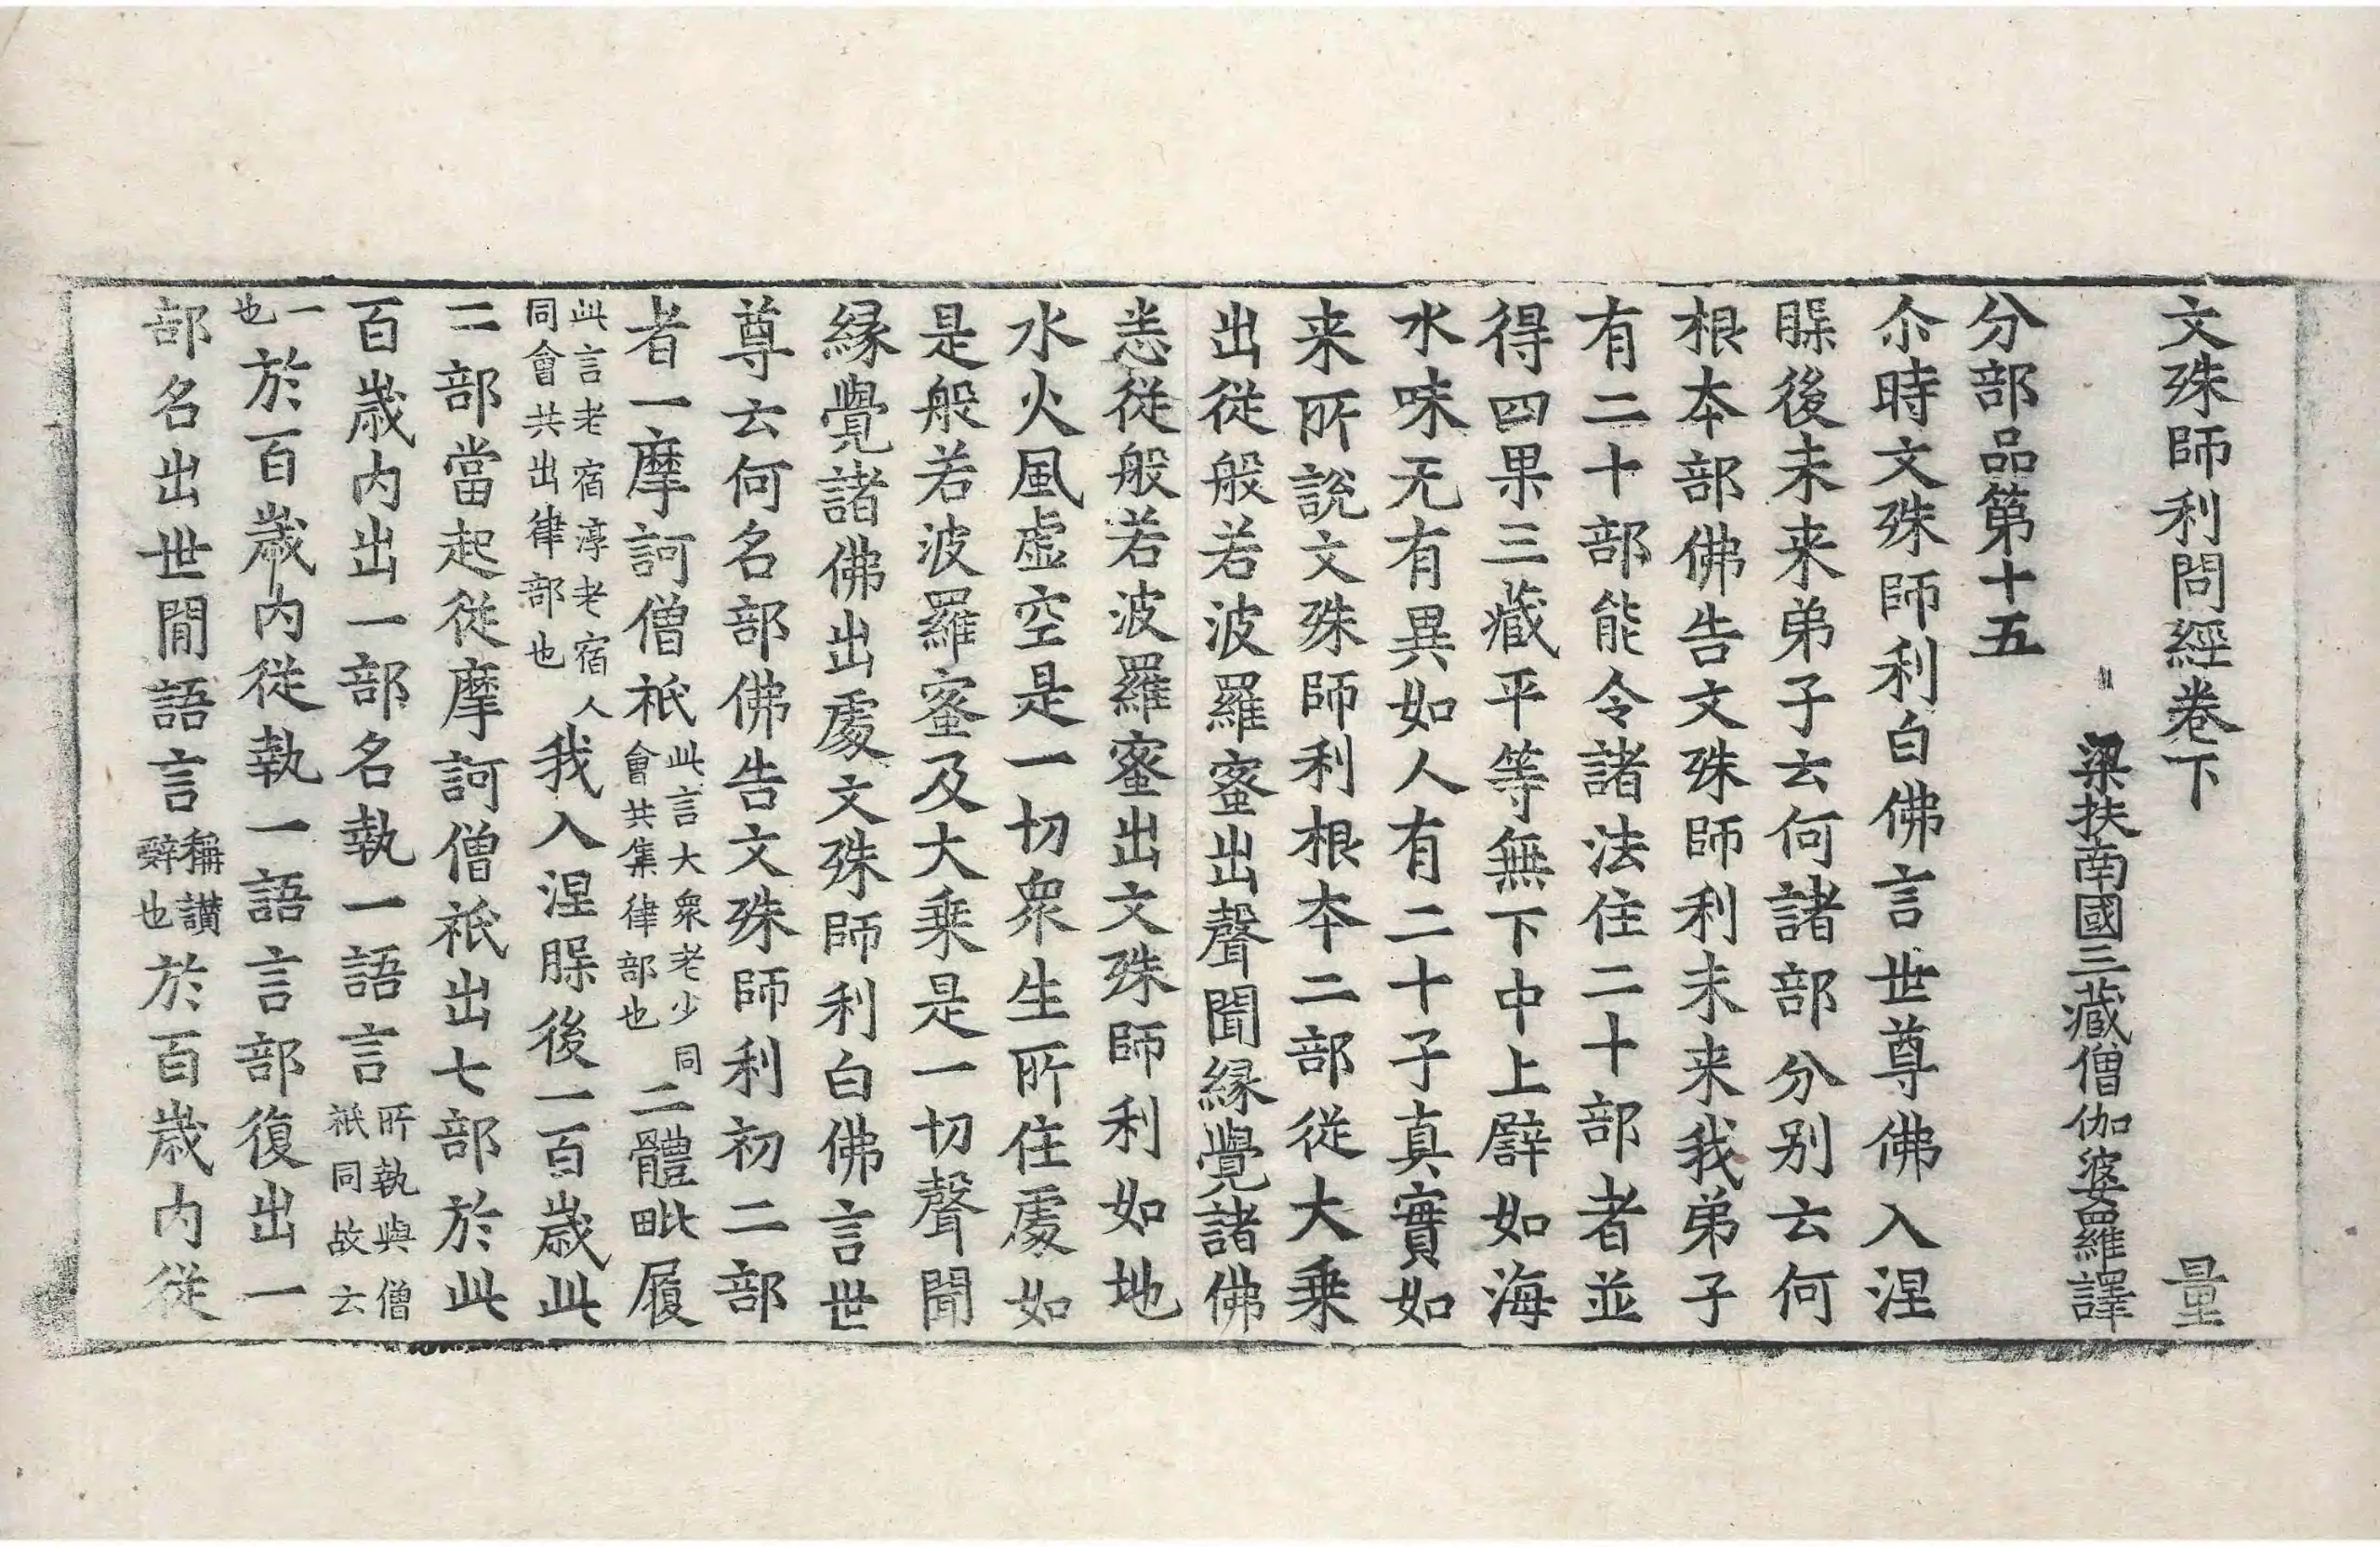 文殊師利問經卷下 量
梁扶南國三藏僧伽婆羅譯
分部品第十五
尒時文殊師利白佛言世尊佛入涅
槃後未来弟子云何諸部分别云何
根本部佛告文殊師利未来我弟子
有二十部能令諸法住二十部者並
得四果三藏平等無下中上譬如海
水味无有異如人有二十子真實如
来所說文殊師利根本二部從大乗
出從般若波羅蜜出聲聞緣覺諸佛
悉從般若波羅蜜出文殊師利如地
水火風虛空是一切衆生所住處如
是般若波羅蜜及大乗是一切聲聞
緣覺諸佛出處文殊師利白佛言世
尊云何名部佛告文殊師利初二部
者一摩訶僧祇此言大衆老少同會共集律部也二體毗履
此言老宿淳老宿人同會共出律部也我入涅槃後一百歲此
二部當起從摩訶僧祇出七部於此
百歲内出一部名執一語言所執與僧祇同故云
一也於百歲内從執一語言部復出一
部名出世間語言稱讃辭也於百歲内從